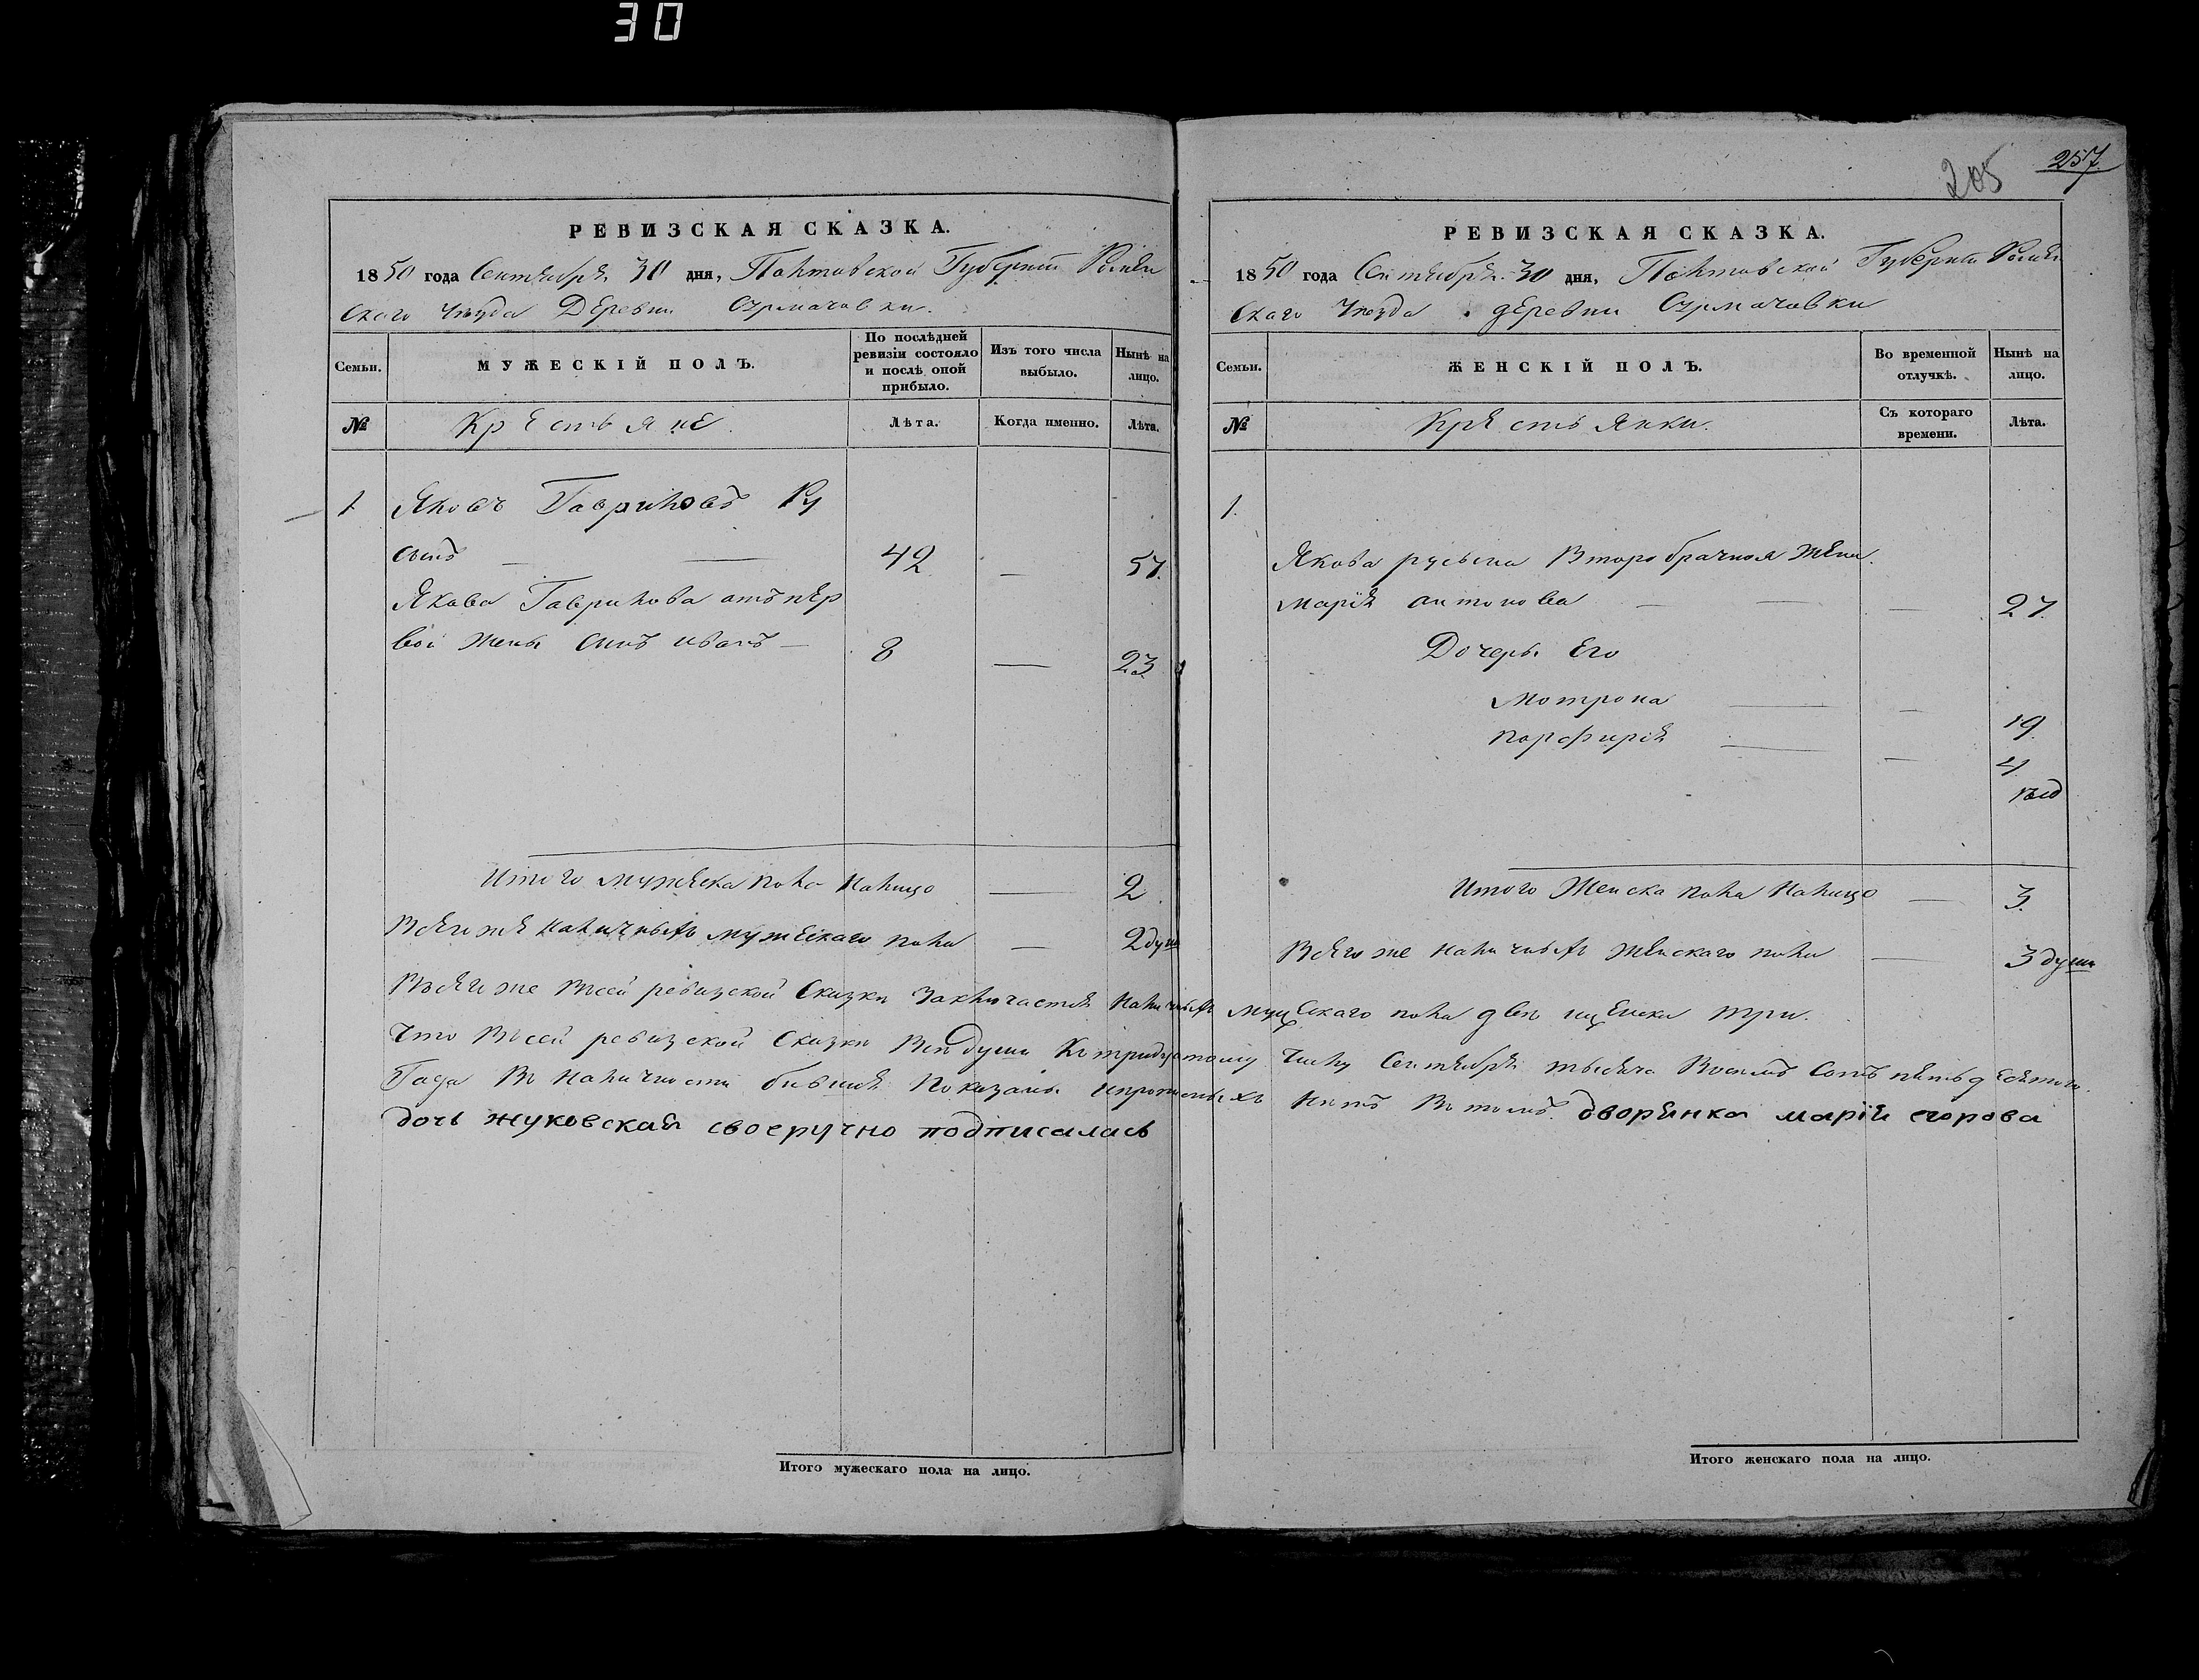 30
205 257
РЕВИЗСКАЯ СКАЗКА.
1850 года Сентября 30 дня, Полтавской Губерніи Ромен
скаго Уезда Деревни Сурмачовки.
Семьи. МУЖЕСКІЙ ПОЛЪ. По послѣдней ревизіи состояло и послѣ оной прибыло. Изъ того числа выбыло. Нынѣ на лицо.
№ Крестьяне. Лѣта. Когда именно. Лѣта.
1 Яковъ Гавриловъ Ру
сынъ 42 — 57.
Якова Гаврилова отъ пер
вой жены сынъ иванъ — 8 — 23
Итого мужеска пола налицо — 2
Всего же наличныхъ мужескаго пола — 2 душ
РЕВИЗСКАЯ СКАЗКА.
1850 года Сентября 30 дня, Полтавской Губерніи Ромен
скаго Уезда деревни Сурмачовки
Семьи. ЖЕНСКІЙ ПОЛЪ. Во временной отлучкѣ. Нынѣ на лицо.
№ Крестьянки. Съ котораго времени. Лѣта.
1.
Якова русына Второбрачная жена
Марія антонова — — 27.
Дочеры Его
Мотрона — — 19
порфирія — — 4
Итого Женска пола Налицо — 3.
Всего же наличныхъ женскаго пола — 3 души
Всего же Въсей ревизской Сказки Заключается Наличныхъ мущескаго пола две ищенска три.
Что Въсей ревизской Сказки Все души Ктридцатому Числу Сентября тысяча Восемъ Сотъ пятьдесятого
Года Въ Наличности бывшія Показаны ипрописныхъ Нетъ Втомъ дворянка марія егорова
дочь жуковская своеручно подписалась
Итого мужескаго пола на лицо.
Итого женскаго пола на лицо.